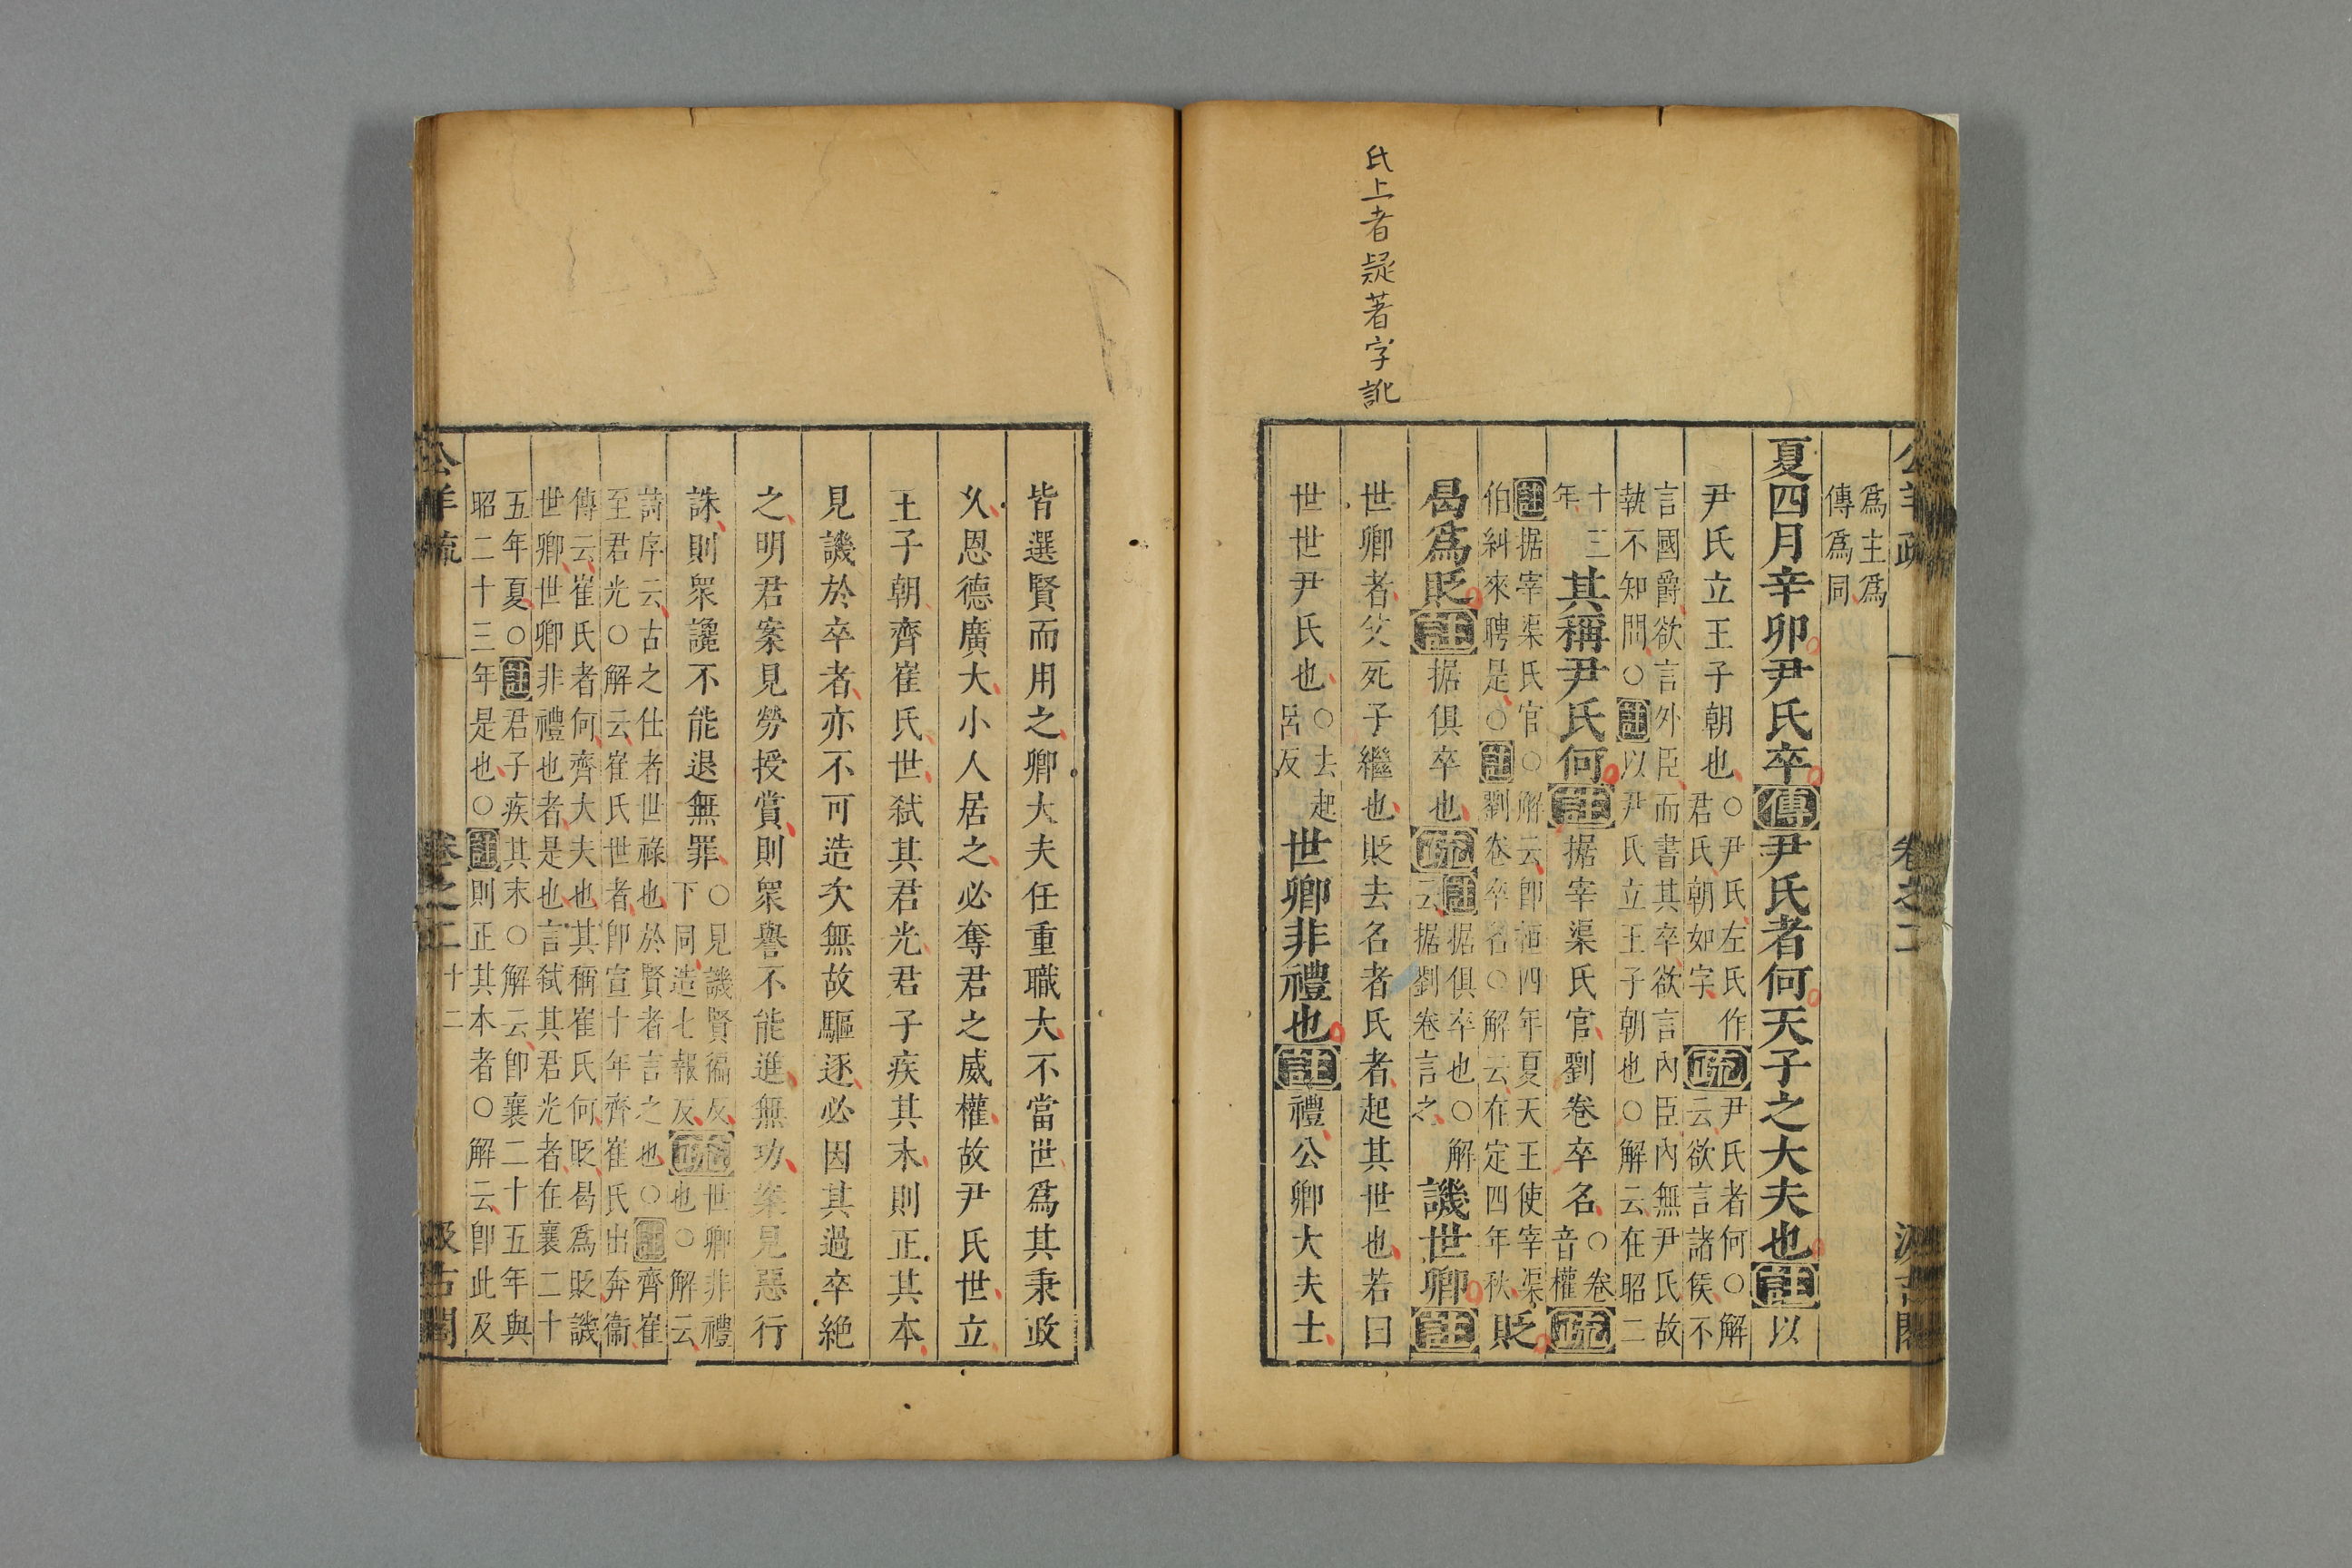 氏上者疑著字訛
公羊疏 卷之二 汲古閣
爲主爲
傳爲同
夏四月辛卯尹氏卒傳尹氏者何天子之大夫也註以
尹氏立王子朝也○尹氏左氏作
君氏朝如字疏尹氏者何○解
云欲言諸侯不
言國爵欲言外臣而書其卒欲言內臣內無尹氏故
執不知問○註以尹氏立王子朝也○解云在昭二
十三
年其稱尹氏何註据宰渠氏官劉卷卒名○卷
音權疏
註据宰渠氏官○解云卽桓四年夏天王使宰渠
伯糾來聘是○註劉卷卒名○解云在定四年秋貶
曷爲貶註据俱卒也疏註据俱卒也○解
云据劉卷言之譏世卿註
世卿者父死子繼也貶去名者氏者起其世也若曰
世世尹氏也○去起
呂反世卿非禮也註禮公卿大夫士
皆選賢而用之卿大夫任重職大不當世爲其秉政
久恩德廣大小人居之必奪君之威權故尹氏世立
王子朝齊崔氏世弑其君光君子疾其末則正其本
見譏於卒者亦不可造次無故驅逐必因其過卒絶
之明君案見勞授賞則衆譽不能進無功案見惡行
誅則衆讒不能退無罪○見譏賢徧反
下同造七報反疏世卿非禮
也○解云
詩序云古之仕者世祿也於賢者言之也○註齊崔
至君光○解云崔氏世者卽宣十年齊崔氏出奔衞
傳云崔氏者何齊大夫也其稱崔氏何貶曷爲貶譏
世卿世卿非禮也者是也言弑其君光者在襄二十
五年夏○註君子疾其末○解云卽襄二十五年與
昭二十三年是也○註則正其本者○解云卽此及
公羊疏 卷之二 十二 汲古閣